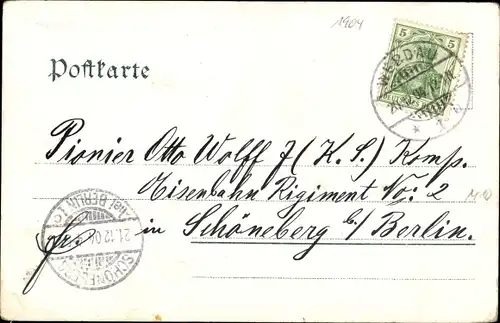 1904
5 5
Postkarte
WERDAU
Pionier Otto Wolff 7 (K. S.) Komp.
Eisenbahn Rigiment No: 2
fr. in Schöneberg b/ Berlin.
bei BERLIN
21.12.04
SCHÖNEBERG